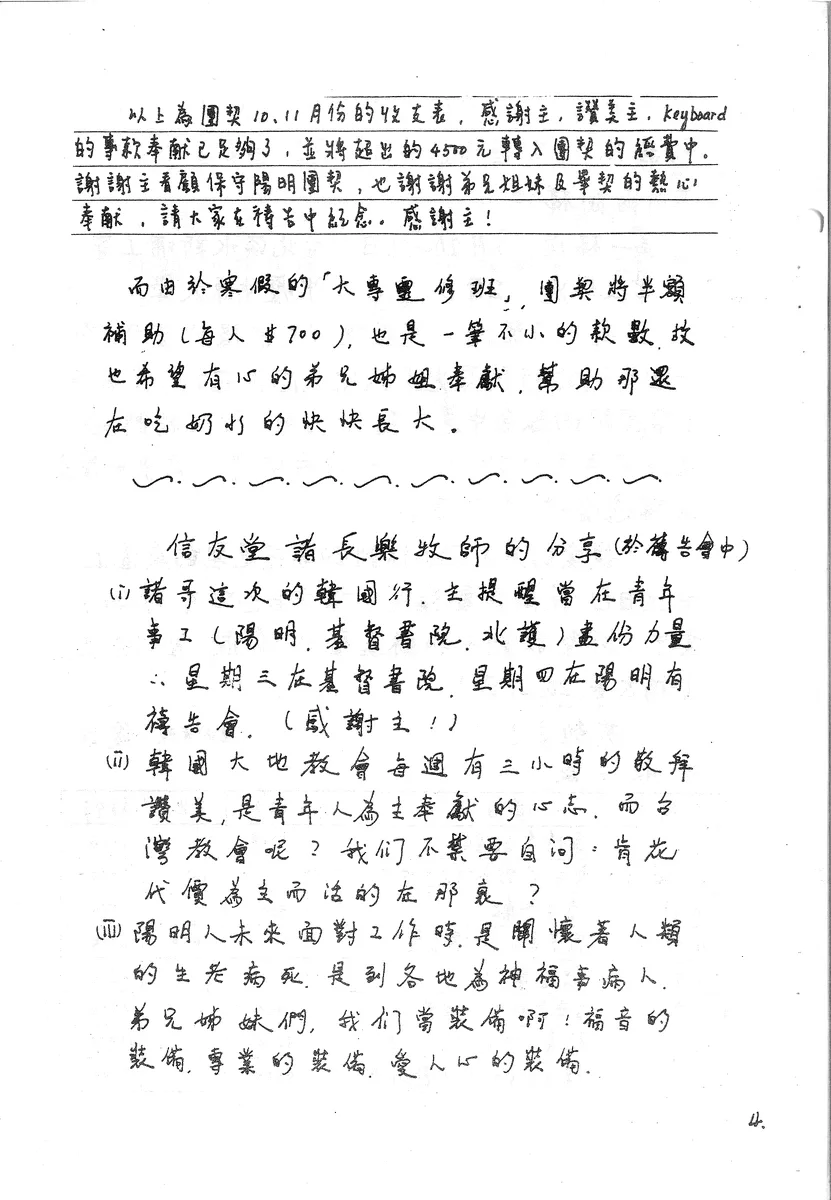 以上為團契10、11月份的收支表，感謝主，讚美主，keyboard
的事款奉献已足夠了，並將超出的4500元轉入團契的經費中。
謝謝主看顧保守陽明團契，也謝謝弟兄姐妹及畢契的熱心
奉献，請大家在禱告中紀念。感謝主！
而由於寒假的「大專靈修班」，團契將半額
補助（每人＄700），也是一筆不小的款數，故
也希望有心的弟兄姊姐奉獻，幫助那還
在吃奶水的快快長大。
信友堂諸長樂牧師的分享（於禱告會中）
(i) 諸哥這次的韓國行，主提醒當在青年
事工（陽明、基督書院、北護）盡份力量
∴星期三在基督書院、星期四在陽明有
禱告會。（感謝主！）
(ii) 韓國大地教會每週有三小時的敬拜
讚美，是青年人為主奉獻的心志。而台
灣教會呢？我们不禁要自问：肯花
代價為主而活的在那裏？
(iii) 陽明人未來面對工作時，是關懷著人類
的生老病死，是到各地為神福事病人。
弟兄姊妹們，我们當裝備啊！福音的
裝備，專業的裝備，愛人心的裝備。
4.